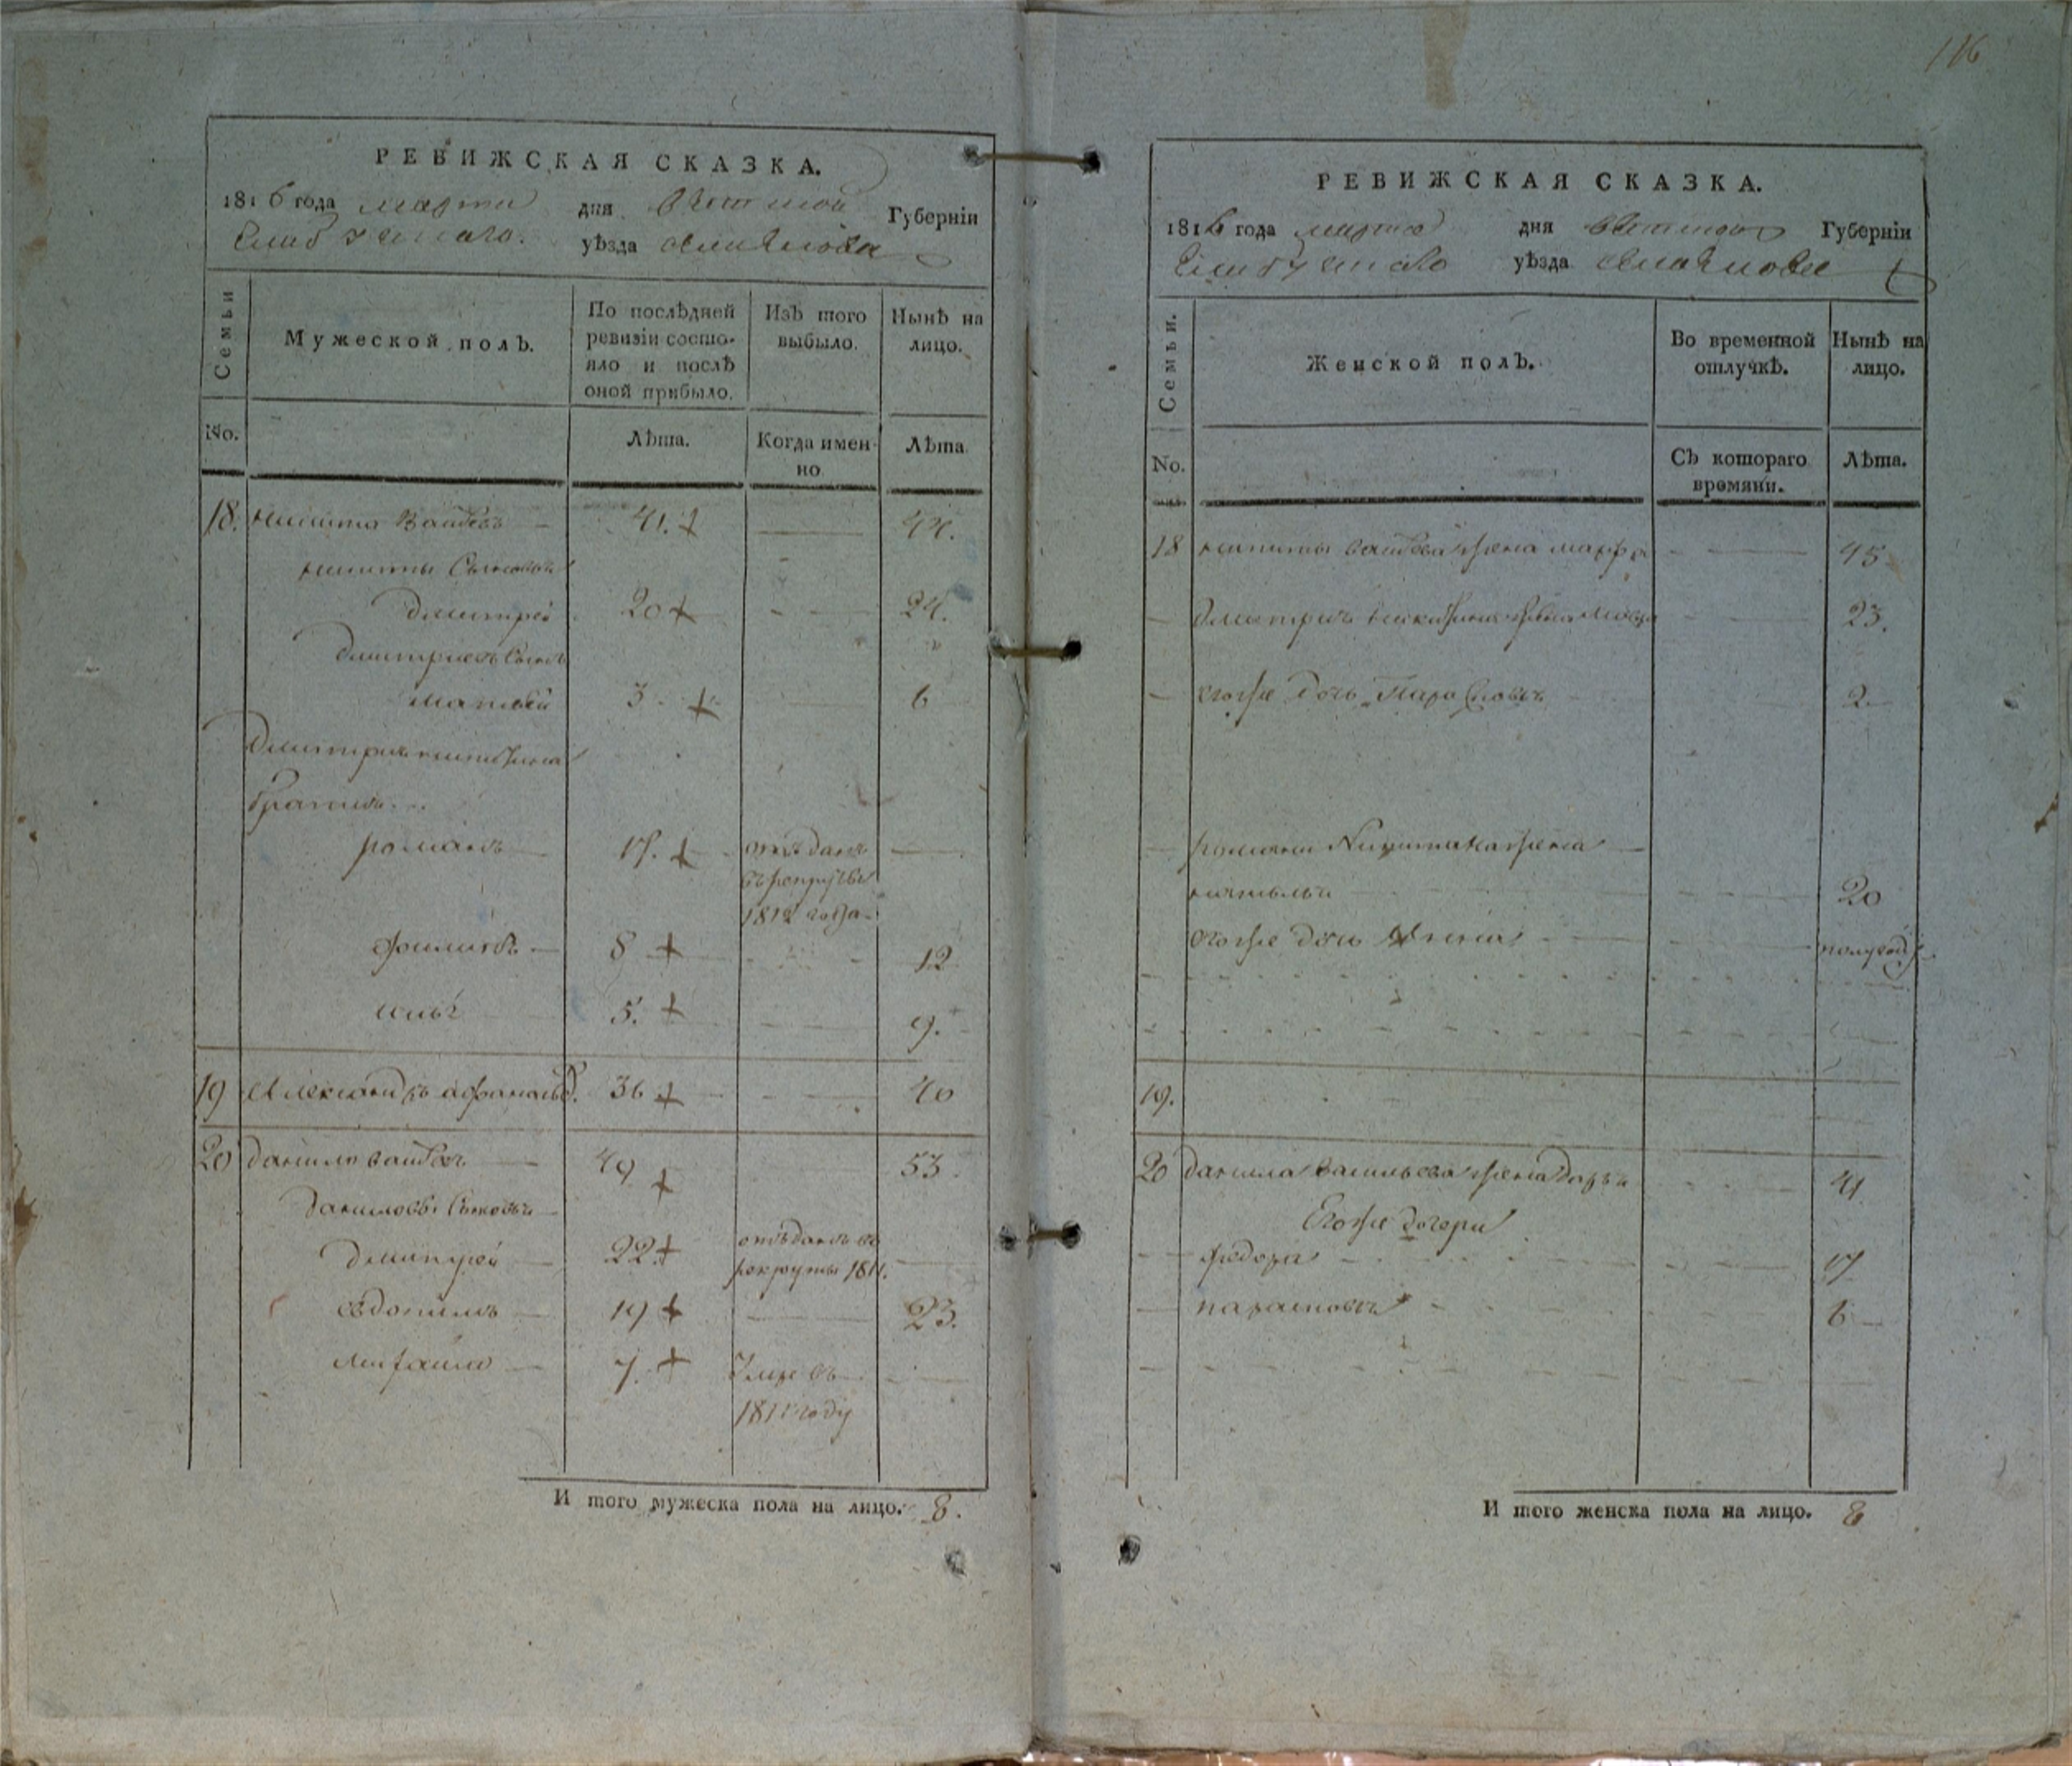 116
РЕВИЖСКАЯ СКАЗКА.
1816 года марта дня Вятской Губерніи
уѣзда
Семьи
Мужеской полъ.
По послѣдней ревизіи состо-
яло и послѣ
оной прибыло.
Изъ того
выбыло.
Нынѣ на
лицо.
No.
Лѣта.
Когда имен-
но
Лѣта.
18. Никита Васильевъ 41. 44.
Никиты сыновья
Дмитрей 20 24.
Дмитриевъ сынъ
Матвей 3 6
Дмитрия Никитина
братья
романъ 17. отъданъ
въ рекруты
1812 года
филипъ 8 12
5. 9.
19 Александръ афанасьев. 36 40
20 Данило Васильевъ 49 53
Даниловы сыновья
Дмитрей 22 отъданъ въ
рекруты 1811.
евдокимъ 19 23.
михаила 7. умре въ
1811 году
И того мужеска пола на лицо. 8.
РЕВИЖСКАЯ СКАЗКА.
1816 года марта дня Вятской Губерніи
уѣзда
Семьи.
Женской полъ.
Во временной
отлучкѣ.
Нынѣ на
лицо.
No.
Съ котораго
времяни.
Лѣта.
18 Никиты Васильева жена марфа 45
Дмитрия Никитина жена 23.
Егоже дочь Парасковья 2
романа Никитина жена
20
Егоже дочь полгода
19.
20 Данила Васильева жена Дарья 41
Егоже дочери
федора 17
парасковья 6
И того женска пола на лицо. 8